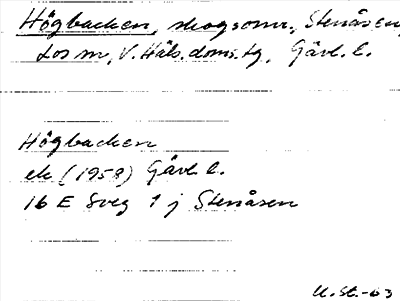 Högbacken, skogsomr., Stenåsen,
Los sn, V. Häls. doms. tg, Gävl. l.
Högbacken
ek (1958) Gävl. l.
16 E Sveg 1 j Stenåsen
U. St. -63